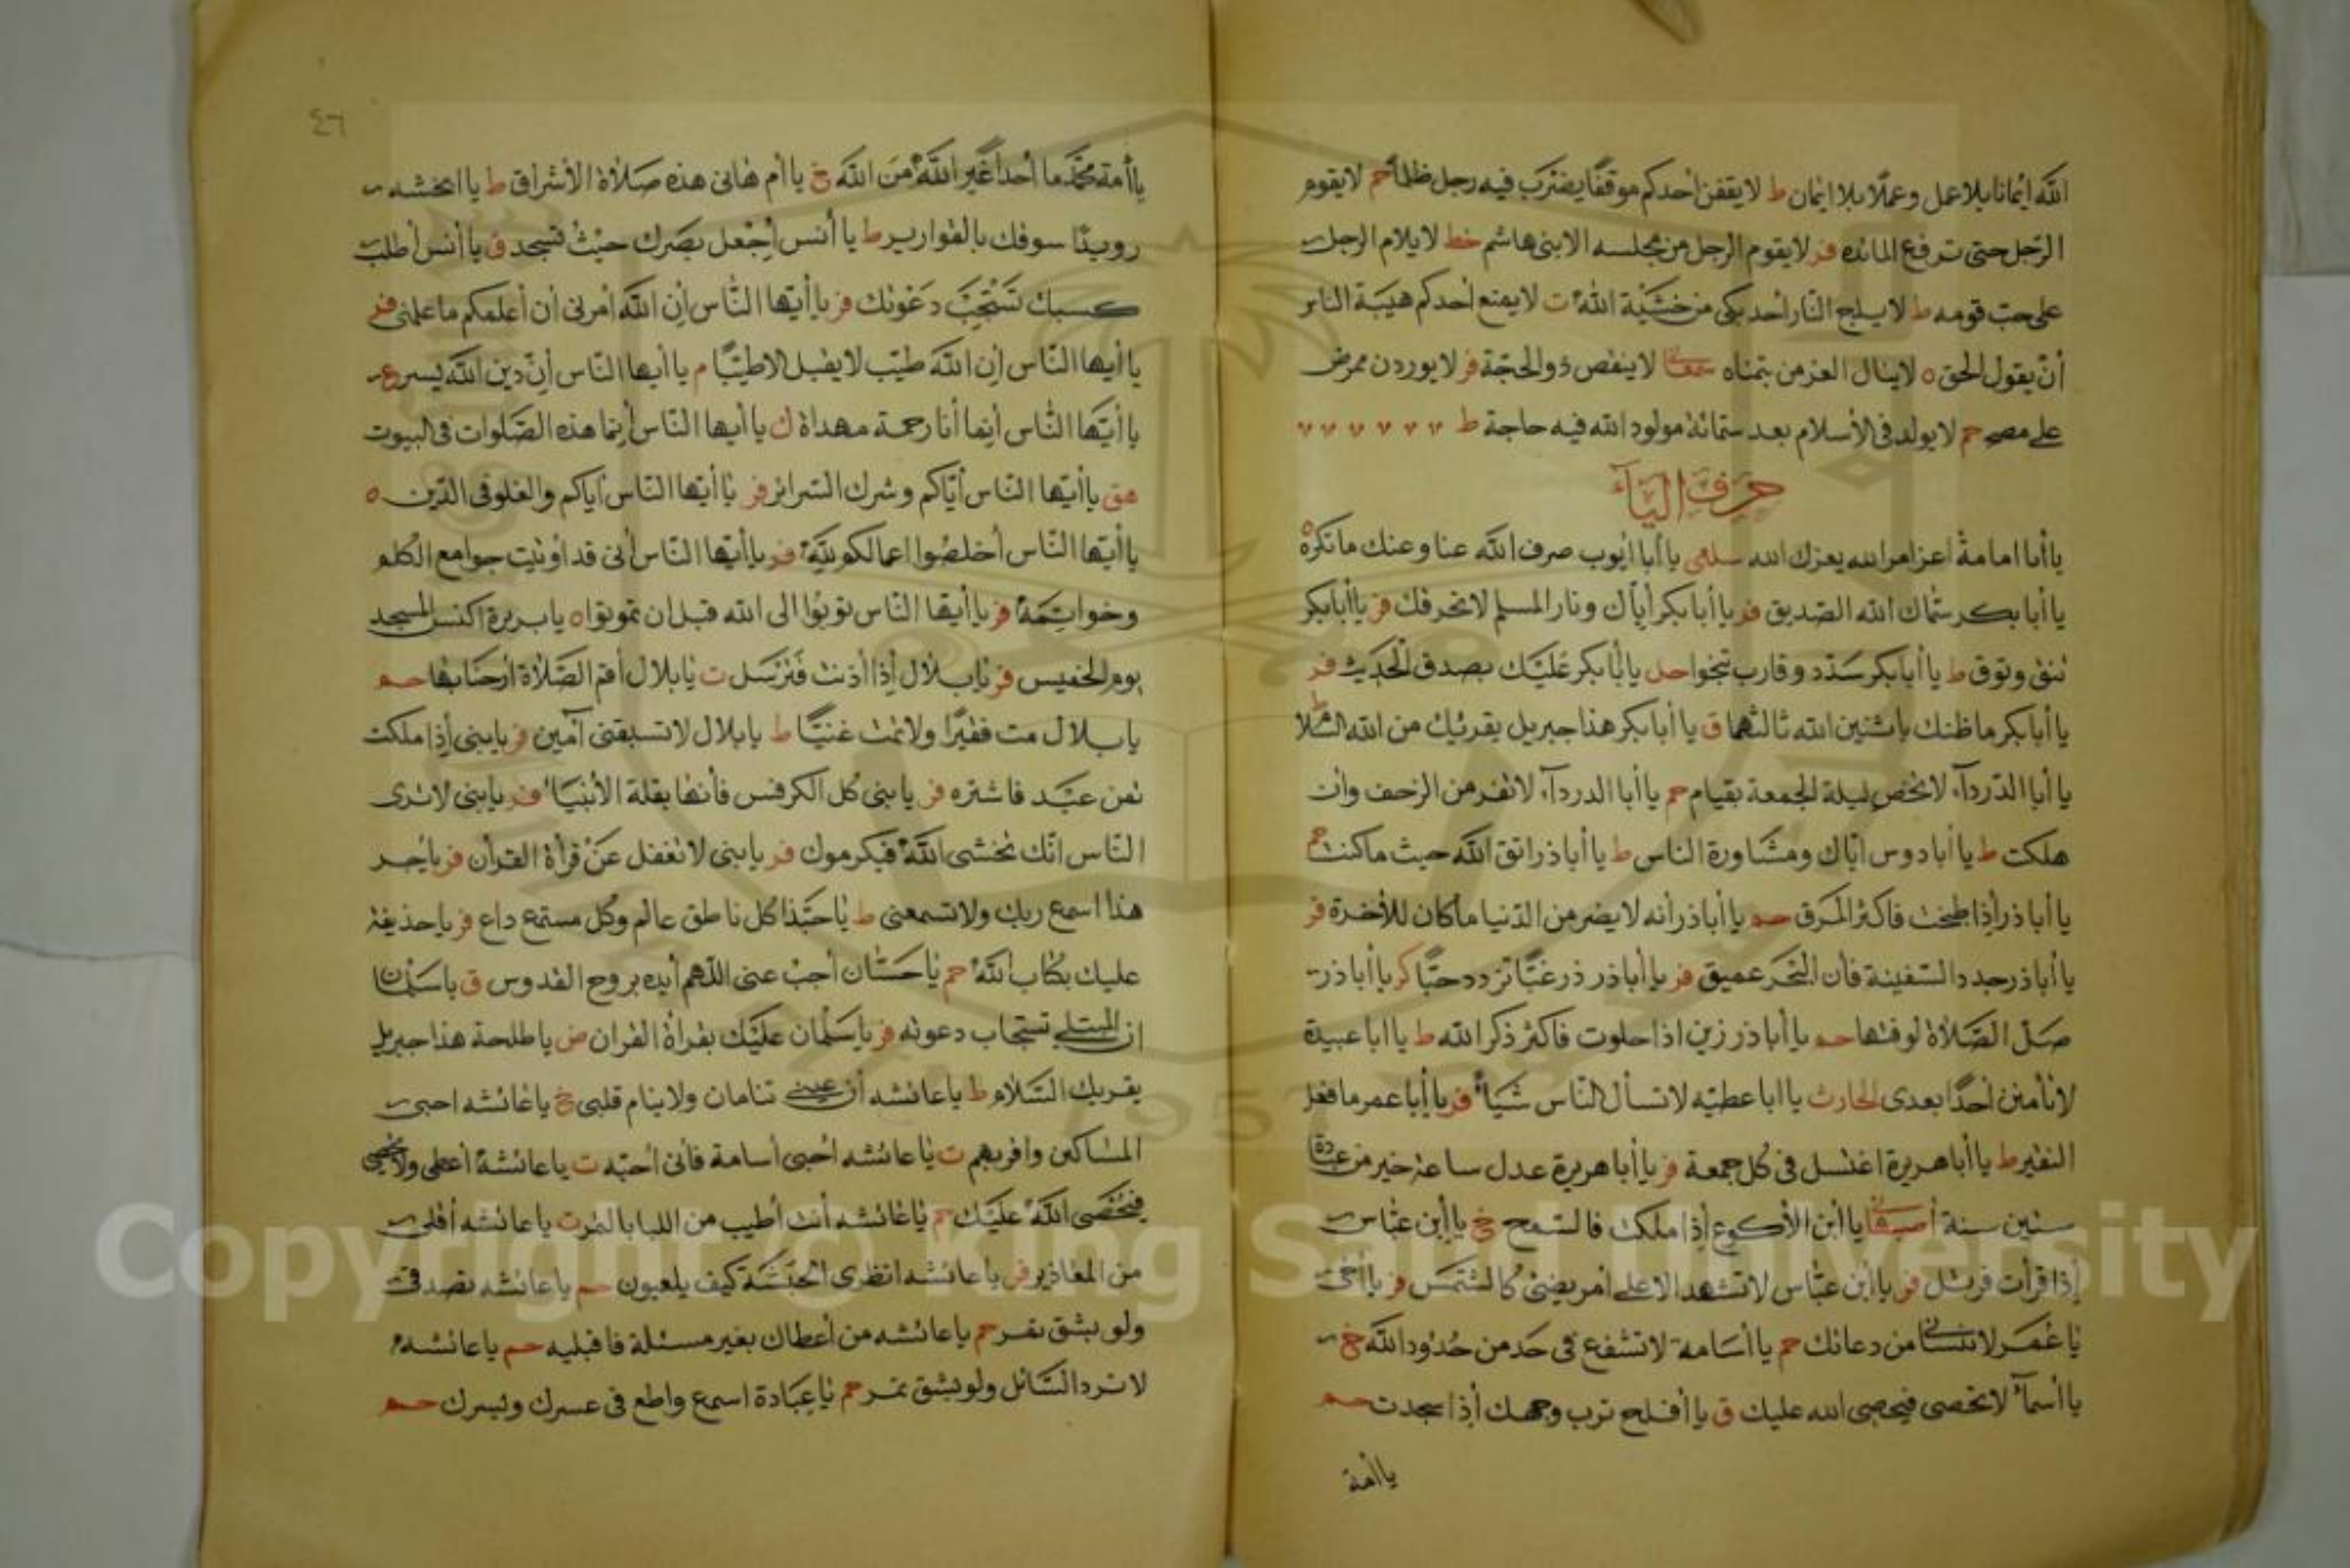 الله ايمانا بلا عمل وعملا بلا ايمان ط لا يقفن احدكم موقفا يضرب فيه رجل ظلما حم لا يقوم
الرجل حتى ترفع المائده فر لا يقوم الرجل من مجلسه الا بنى هاشم خط لا يلام الرجل
على حب قومه ط لا يلج النار احد بكى من خشية الله ت لا يمنع احدكم هيبة الناس
أن يقول الحق ه لا ينال العز من يتمناه لا ينقص ذو الحجة فر لا يوردن ممرض
على مصح حم لا يولد فى الأسلام بعد ستمائة مولود لله فيه حاجة ط
حرف الياء
يا أبا امامة اعز امر الله يعزك الله سلمى يا أبا ايوب صرف الله عنا وعنك ما نكره ه
يا أبا بكر سماك الله الصديق فر يا أبا بكر أياك ونار المسلم لا تحرقك فر يا أبا بكر
تنق وتوق ط يا أبا بكر سدد وقارب تنجوا حل يا أبا بكر عليك بصدق الحديث فر
يا أبا بكر ما ظنك باثنين الله ثالثهما ق يا أبا بكر هذا جبريل يقرئك من الله السلام ط
يا أبا الدرداء لا تخص ليلة الجمعة بقيام حم يا أبا الدرداء لا تفر من الزحف وان
هلكت ط يا أبا دوس اياك ومشاورة الناس ط يا أبا ذر اتق الله حيث ما كنت حم
يا أبا ذر أذا طبخت فاكثر المرق حم يا أبا ذر أنه لا يضر من الدنيا ما كان للأخرة فر
يا أبا ذر جدد السفينة فأن البحر عميق فر يا أبا ذر زر غبا تزدد حبا كر يا أبا ذر
صل الصلاة لوقتها حم يا أبا ذر زين اذا خلوت فاكثر ذكر الله ط يا ابا عبيدة
لا تأمنن أحدا بعدى الحارث يا ابا عطيه لا تسأل الناس شيأ فر يا أبا عمر ما فعل
النغير ط يا أبا هريرة اغتسل فى كل جمعة فر يا أبا هريرة عدل ساعة خير من عبادة
ستين سنة يا أبن الأكوع أذا ملكت فالسمح خ يا أبن عباس
أذا قرأت فرتل فر يا أبن عباس لا تشهد الا على أمر يضئ كالشمس فر يا أخى
يا عمر لا تنسانى من دعائك حم يا أسامة لا تشفع فى حد من حدود الله خ
يا أسماء لا تحصى فيحصى الله عليك ق يا أفلح ترب وجهك أذا سجدت حم
يا أمة
٤٦
يا أمة محمد ما أحد أغير الله من الله خ يا أم هانى هذه صلاة الأشراق ط يا انجشه
رويدا سوقك بالقوارير ط يا أنس أجعل بصرك حيث تسجد ق يا أنس أطلب
كسبك تستجب دعوتك فر يا أيها الناس أن الله أمرنى أن أعلمكم ما علمنى فر
يا أيها الناس أن الله طيب لا يقبل الا طيبا م يا أيها الناس أن دين الله يسر ع
يا أيها الناس أنما أنا رحمة مهداة ك يا أيها الناس أنما هذه الصلوات فى البيوت
هق يا أيها الناس أياكم وشرك السرائر فر يا أيها الناس أياكم والغلو فى الدين ه
يا أيها الناس أخلصوا اعمالكم لله فر يا أيها الناس أنى قد اوتيت جوامع الكلم
وخواتمه فر يا أيها الناس توبوا الى الله قبل ان تموتوا ه يا بريرة اكنس المسجد
يوم الخميس فر يا بلال أذا أذنت فترسل ت يا بلال أقم الصلاة ارحنا بها حم
يا بلال مت فقيرا ولا تمت غنيا ط يا بلال لا تسبقنى آمين فر يا بنى أذا ملكت
ثمن عبد فاشتره فر يا بنى كل الكرفس فأنها بقلة الأنبياء فر يا بنى لا ترى
الناس انك تخشى الله فيكرموك فر يا بنى لا تغفل عن قرأة القرأن فر يا جر
هذا اسمع ربك ولا تسمعنى ط يا حبذا كل ناطق عالم وكل مستمع داع فر يا حذيفة
عليك بكتاب الله حم يا حسان أجب عنى اللهم أيده بروح القدوس ق يا سلمان
ان المبتلى تستجاب دعوته فر يا سلمان عليك بقرأة القران ض يا طلحة هذا جبريل
يقريك السلام ط يا عائشه أن عينى تنامان ولا ينام قلبى خ يا عائشه احبى
المساكين واقربهم ت يا عائشه أحبى أسامة فأنى أحبه ت يا عائشة أعطى ولا تحصى
فيحصى الله عليك حم يا عائشه أنت أطيب من اللبا بالتمر ت يا عائشه أقلى
من المعاذير فر يا عائشه انظرى الحبشة كيف يلعبون حم يا عائشه تصدقى
ولو بشق تمر حم يا عائشه من أعطاك بغير مسئلة فاقبليه حم يا عائشه
لا ترد السائل ولو بشق تمر حم يا عبادة اسمع واطع فى عسرك ويسرك حم
Copyright © King Saud University
1957